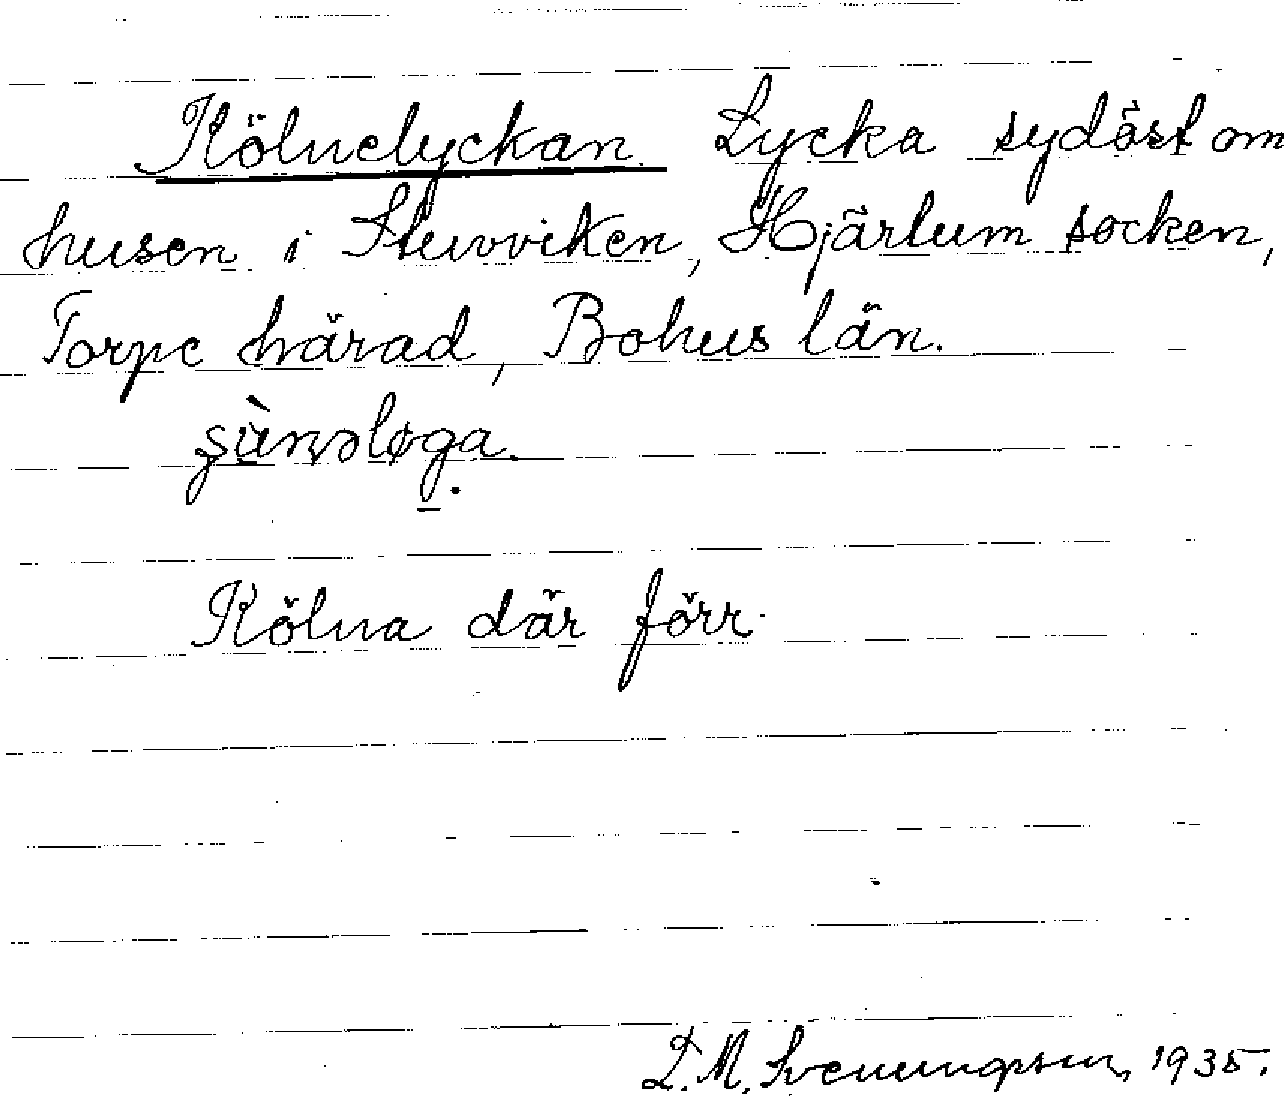 Kölnelyckan. Lycka sydöst om
husen i Stuvviken, Hjärtum socken,
Torpe härad, Bohus län.
Kölna där förr.
D. M. Svenungsson, 1935.